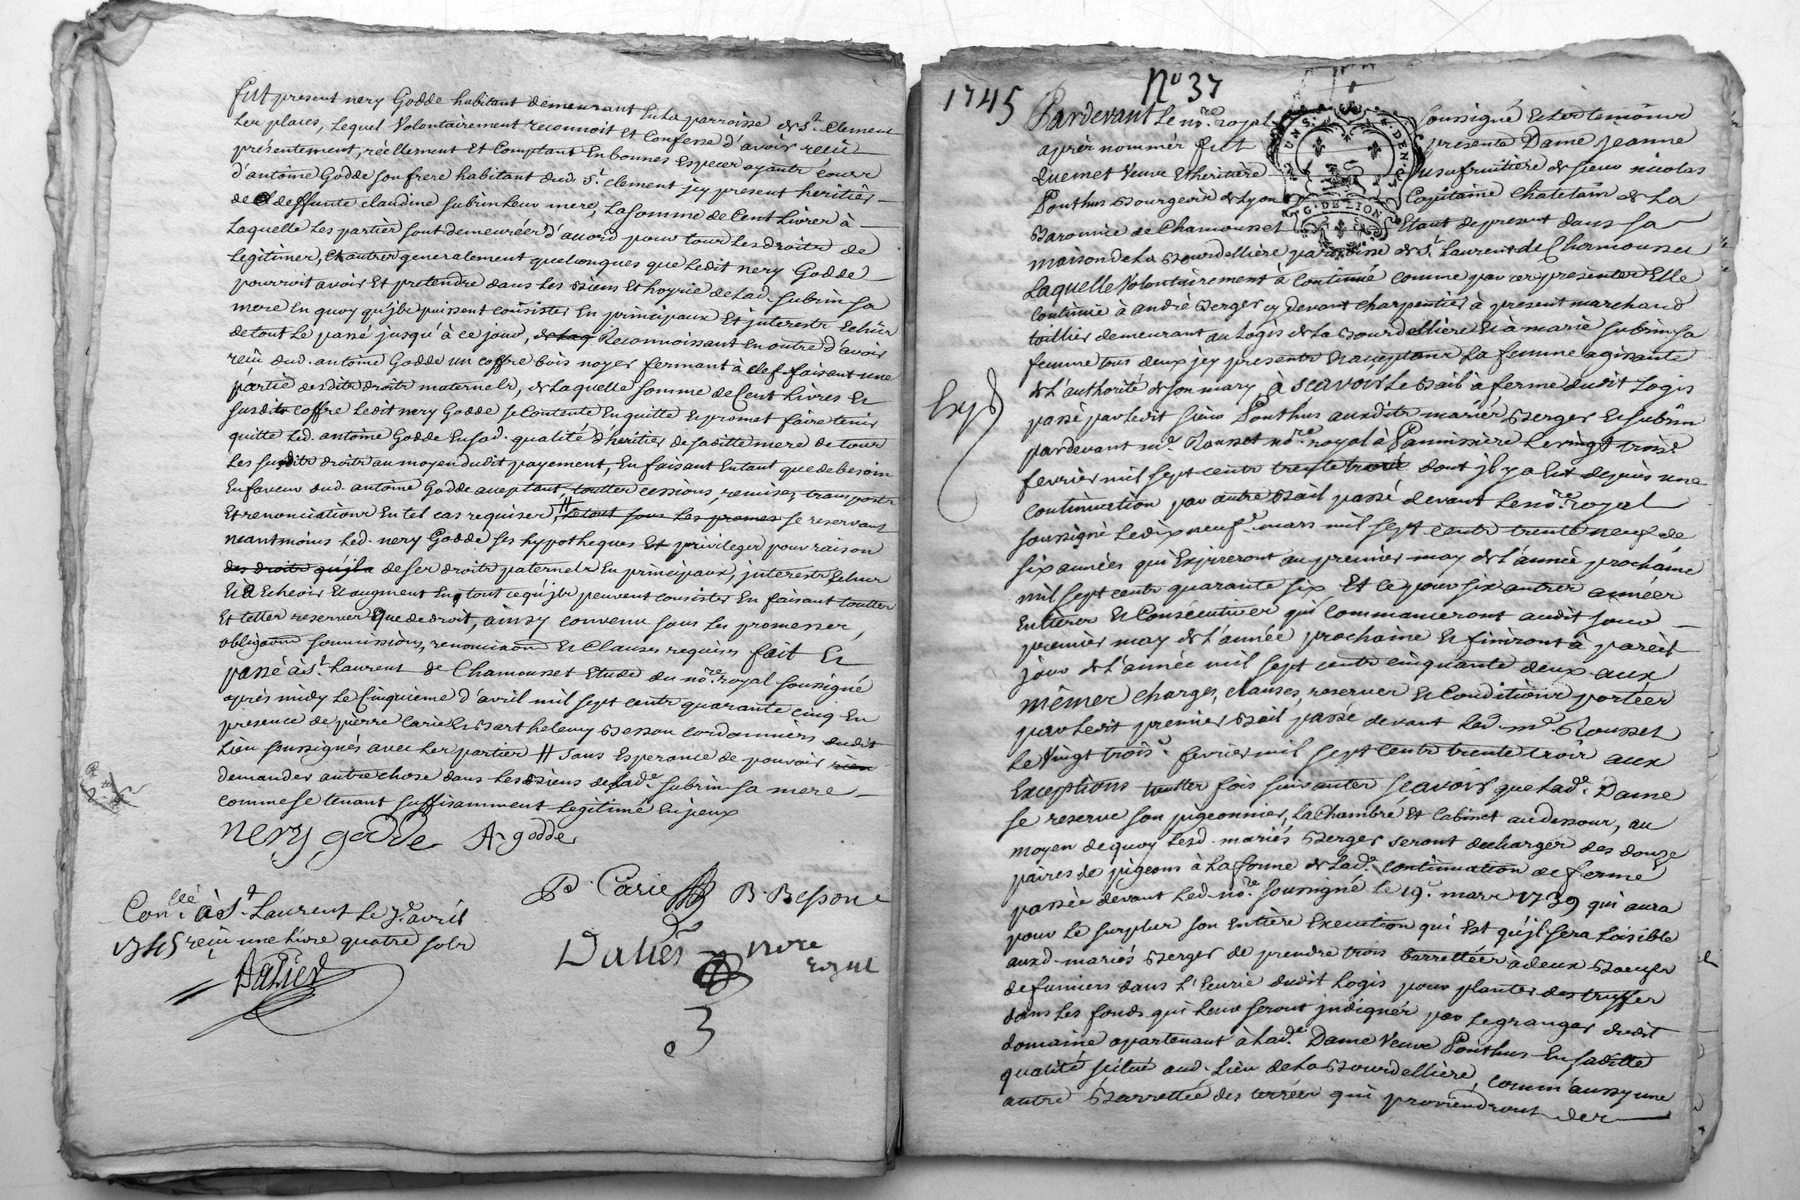 fut present nery Godde habitant demeurant En La parroisse de St. Clement
Les places, Lequel Volontairement reconnoit Et Confesse d'avoir reçû
présentement, réellement Et Comptant En bonnes Especes ayants cours
d'antoine Godde son frere habitant dud. St. Clement jcy present heritiér
de deffunte claudine subrin Leur mere, La somme de Cent Livres à
Laquelle Les partiés sont demeuréés d'accord pour tous Les droits de
Legitimes, Et autres generalement quelconques que Ledit nery Godde
pourroit avoir Et pretendre dans Les Biens Et hoyrie de Lad. subrin sa
mere En quoy qu'jls puissent consister En principaux Et jnterests Echûs
de tout Le passé jusqu'à ce jour, de Laq Reconnoissant En outre d'avoir
reçû dud. antoine Godde un coffre bois noyer fermant à clef faisant une
pártie desdits droits maternels, de Laquelle somme de Cent Livres Et
susdit coffre Ledit nery Godde se Contente En quitte Et promet faire tenir
quitte Led. antoine Godde En sad. qualité d'héritier de saditte mere de tous
Les susdits droits au moyen dudit payement, En faisant En tant que de besoin
En faveur dud. antoine Godde acceptant, touttes cessions, remises, transports
Et renonciations En tel cas requises, # Le tout sous Les promes se reservant
neantmoins Led. nery Godde ses hypotheques Et privileges pour raison
des droits qu'jl a de ses droits paternels En principaux, jnterests Echus
Et à Echeoir Et augment En tout ce qu'jls peuvent consister En faisant touttes
Et telles reserves que de droit, ainsy convenu sous Les promesses,
obligaõns soumissions, renonciaõns Et Clauses requises fait Et
passé à St. Laurent de Chamousset Etude du nore. royal soussigné
aprés midy Le Cinquième d'avril mil sept cents quarante cinq En
presence de pierre Carie Et Barthelemy Besson cordonniers dudit
Lieu soussignés avec Les parties # sans Esperance de pouvoir rien
demander autre chose dans Les Biens de Lade. subrin sa mere
comme se tenant suffisamment Legitimé En jceux
nery godde A. godde
P. Carie B. Besson
Conllé. à St. Laurent Le 7e. avril
1745 reçû une Livre quatre sols
Dalier
Dalier nore
royal
1745 No 37
Pardevant Le nore. royal soussigné Et Les temoins
aprés nommés fut presente Dame jeanne
Quemet Veuve Et heritière Usufruitiere de sieur nicolas
Ponthus Bourgeois de Lyon Capitaine Chatelain de La
Baronnie de Chamousset Etant de present dans sa
maison de La Bourdelliere parroisse de St. Laurent de Chamousset
Laquelle Volontairement à Continué comme par ces presentes Elle
Continüe à andré Berger cy devant charpentier à present marchand
taillier demeurant au Logis de La Bourdelliere Et à marie subrin sa
femme tous deux jcy presents Et acceptans La femme agissante
de L'authorité de son mary, à sçavoir Le Bail à ferme dudit Logis
passé par Ledit sieur Ponthus auxdits mariés Berger Et subrin
pardevant me. Rousset nore. royal à Pannissiere Le vingt troise.
fevrier mil sept cents trente trois dont jl y a Eut depuis une
continuation par autre Bail passé devant Le nore. royal
soussigné Le dix neufe. mars mil sept cents trente neuf de
six années qui Expireront au premier may de L'année prochaine
mil sept cents quarante six, Et ce pour six autres années
Entieres Et Consecutives qui commanceront audit jour
premier may de L'année prochaine Et finiront à pareil
jour de L'année mil sept cents cinquante deux aux
mêmes charges, clauses, reserves Et Conditions portées
par Ledit premier Bail, passé devant Led. me. Rousset
Le Vingt troise. fevrier mil sept cents trente trois aux
Exceptions touttes fois suivantes sçavoir que Lade. Dame
se reserve son pigeonnier, La Chambre Et Cabinet au dessous, au
moyen de quoy Lesd. mariés Berger seront decharges des douze
paires de pigeons à La forme de Lade. continuation de ferme
passée devant Led. nore. soussigné Le 19e. mars 1739 qui aura
pour Le surplus son Entière Execution qui Est qu'jl sera Loisible
auxd. mariés Berger de prendre trois barrettées à deux Boeufs
de fumiers dans L'Ecurie dudit Logis pour planter des truffes
dans Les fonds qui Leur seront jndiqués par Le granger dudit
domaine apartenant à Lade. Dame Veuve Ponthus En saditte
qualité scitué aud. Lieu de La Bourdelliere, comm'aussy une
autre Barrettée des terrées qui proviendront des
Exp.